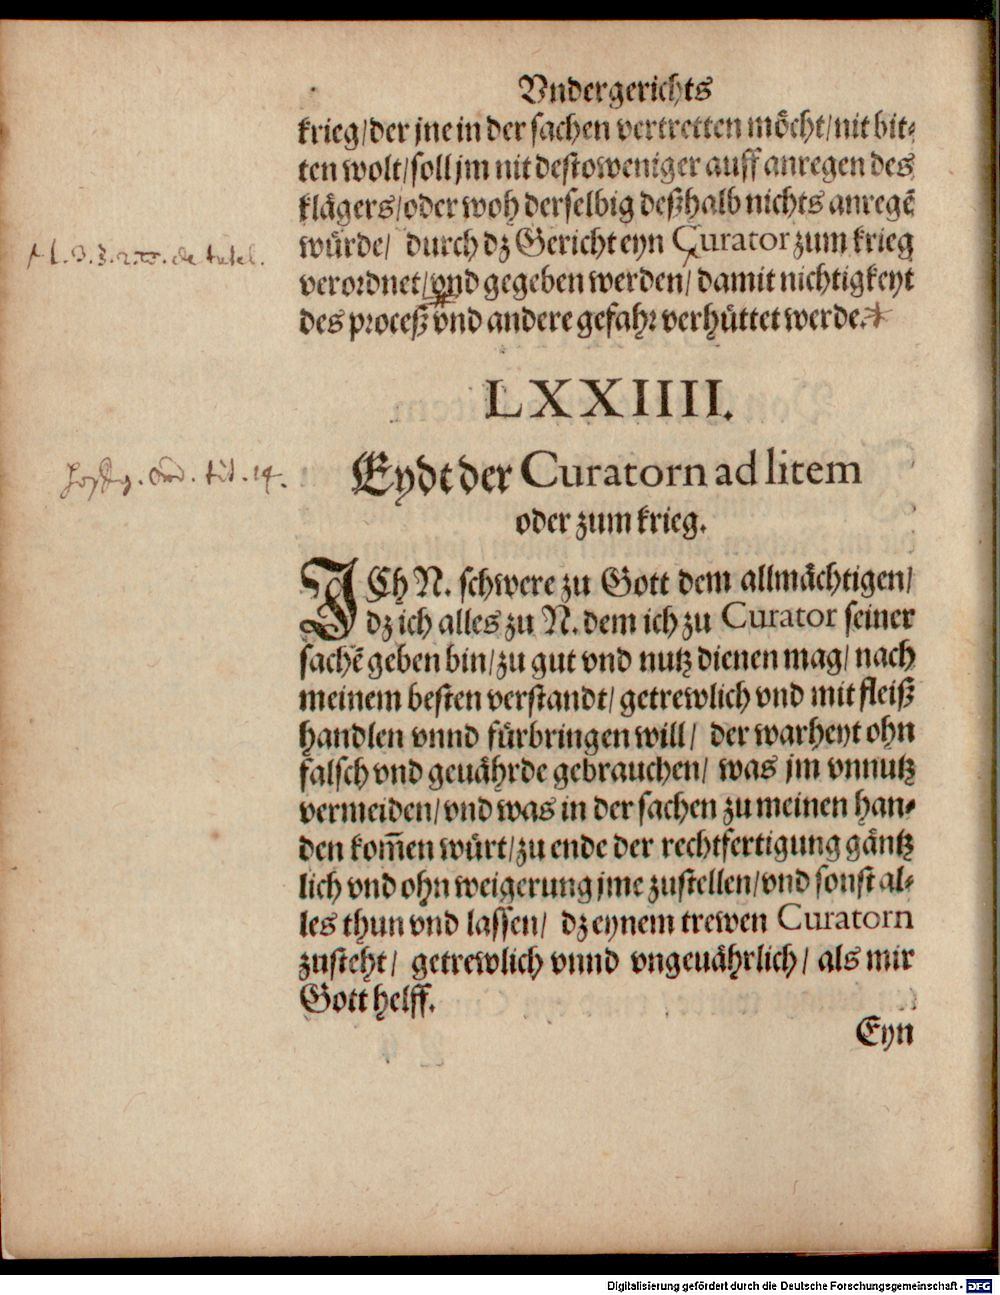 Vndergerichts
krieg/der jne in der sachen vertretten möcht/nit bit-
ten wolt/soll jm nit destoweniger auff anregen des
klägers/oder woh derselbig deßhalb nichts anregē
würde/ durch dz Gericht eyn Curator zum krieg
verordnet/vnd gegeben werden/ damit nichtigkeyt
des proceß vnd andere gefahr verhüttet werde.
LXXIIII.
Eydt der Curatorn ad litem
oder zum krieg.
tit. 14.
ICh N. schwere zu Gott dem allmächtigen/
dz ich alles zu N. dem ich zu Curator seiner
sachē geben bin/zu gut vnd nutz dienen mag/ nach
meinem besten verstandt/ getrewlich vnd mit fleiß
handlen vnnd fürbringen will/ der warheyt ohn
falsch vnd geuährde gebrauchen/ was jm vnnutz
vermeiden/vnd was in der sachen zu meinen han-
den kom̄en würt/zu ende der rechtfertigung gäntz
lich vnd ohn weigerung jme zustellen/vnd sonst al-
les thun vnd lassen/ dz eynem trewen Curatorn
zusteht/ getrewlich vnnd vngeuährlich/ als mir
Gott helff.
Eyn
Digitalisierung gefördert durch die Deutsche Forschungsgemeinschaft - DFG